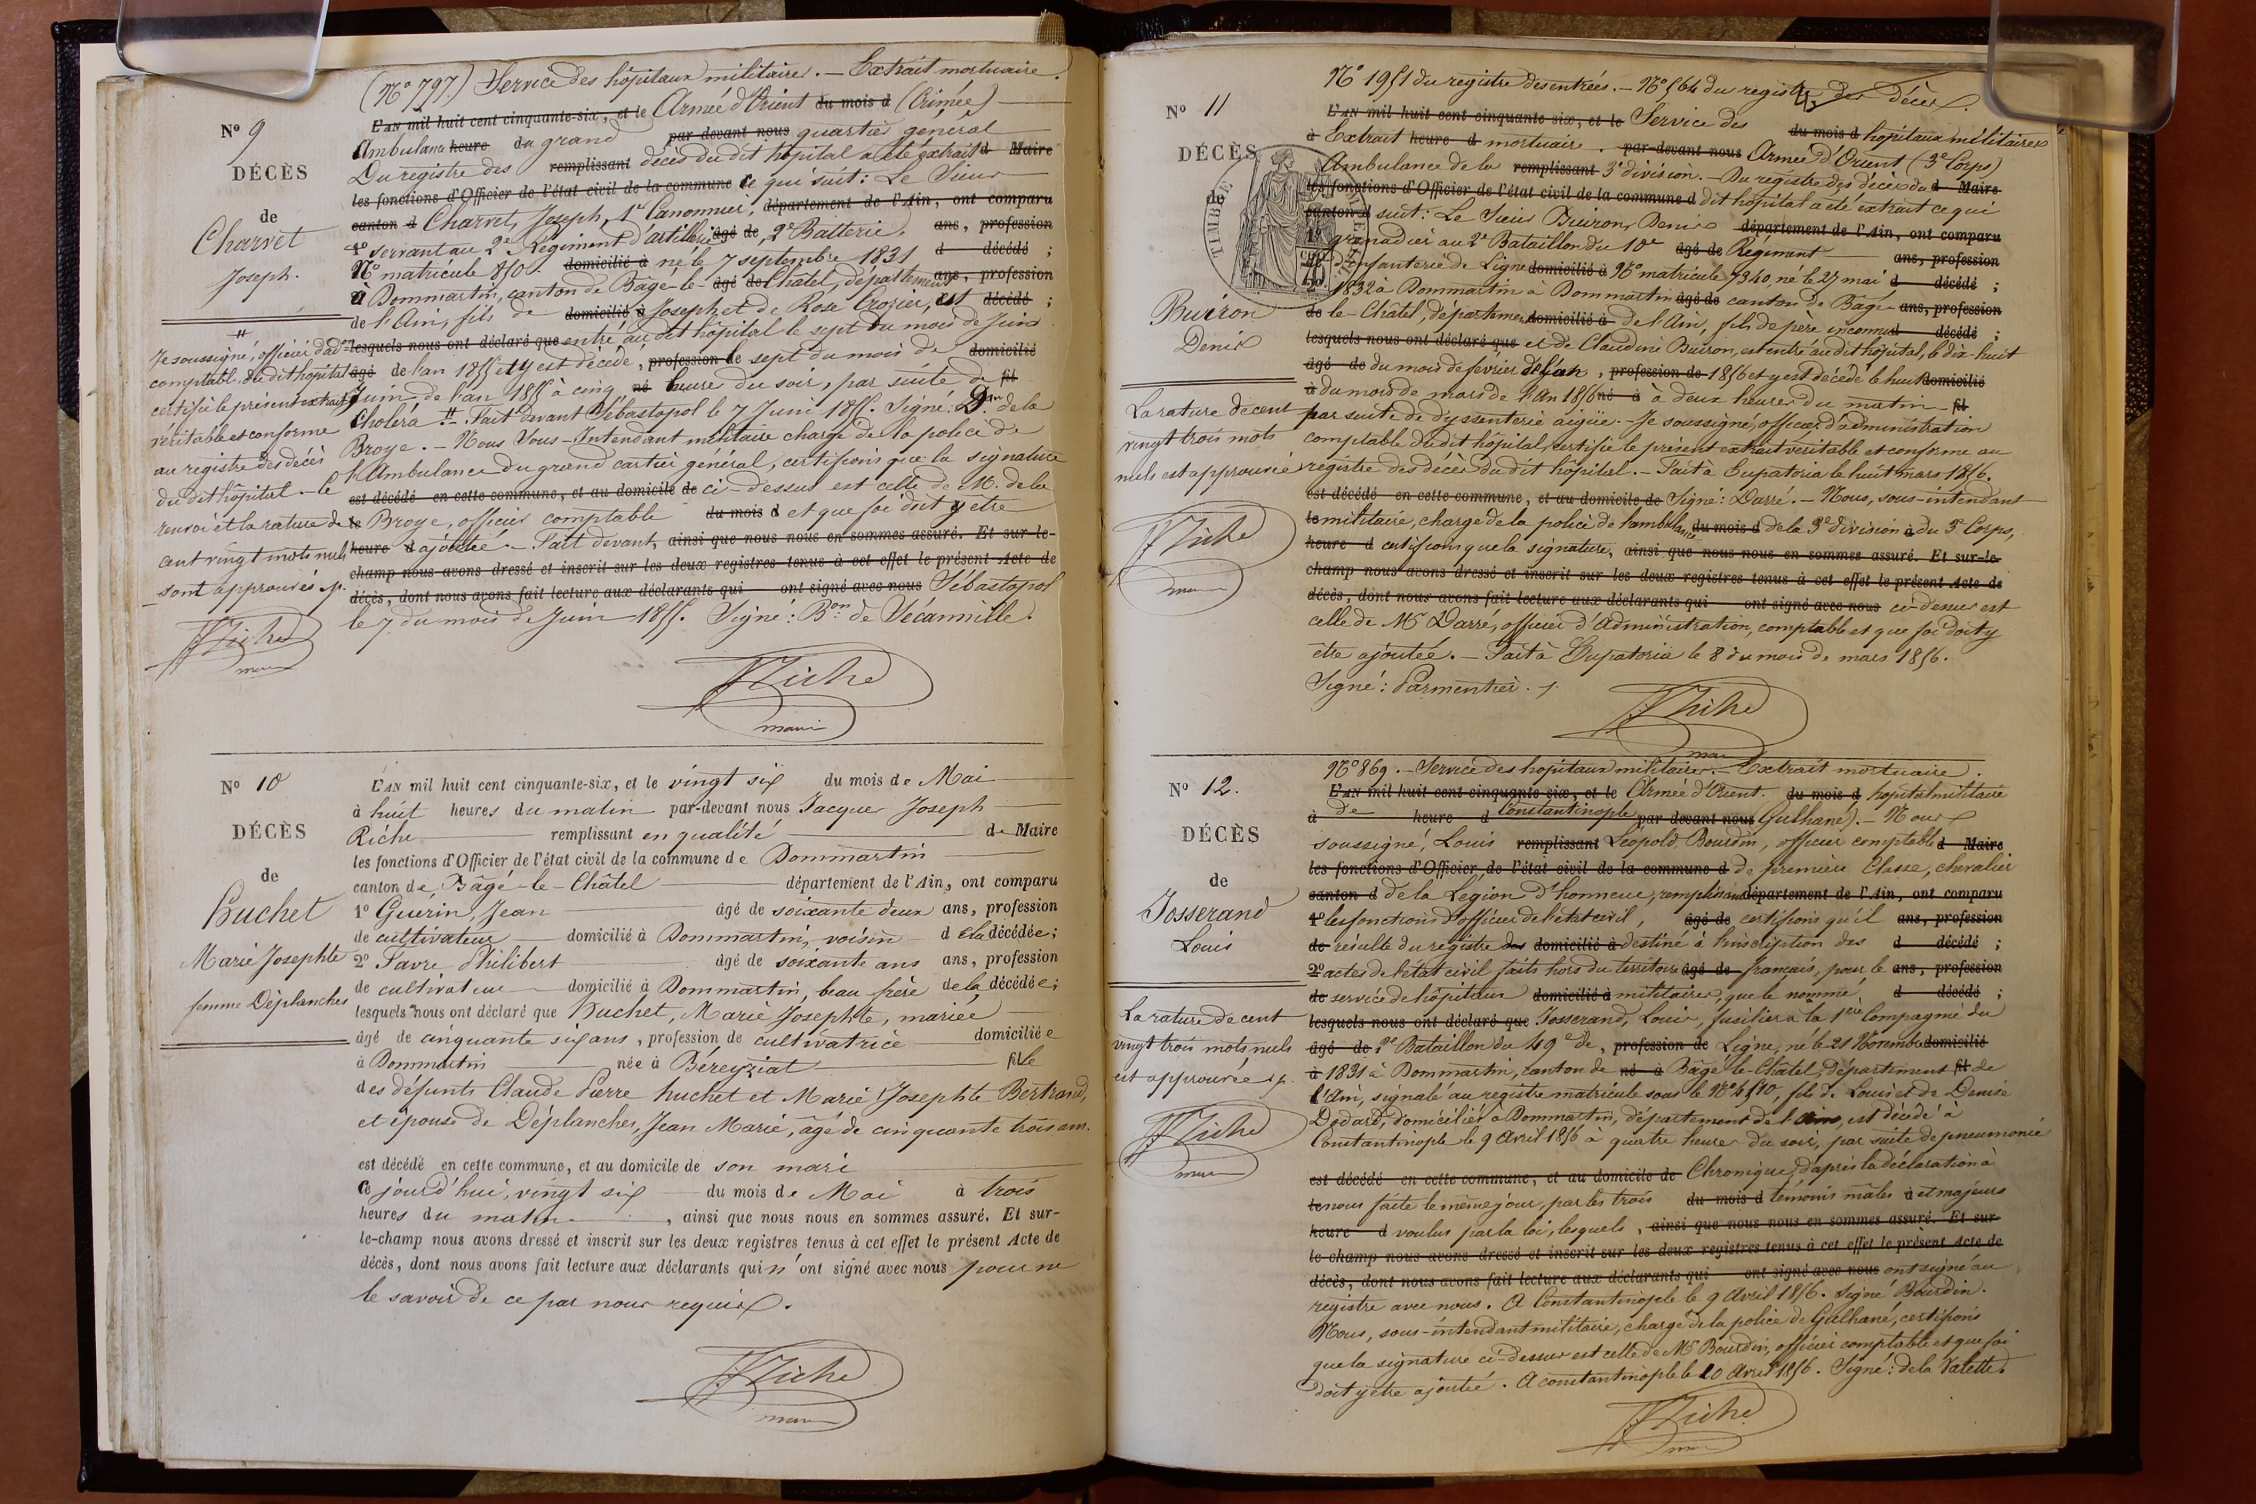 (N° 797.) Service des hôpitaux militaire. — Extrait mortuaire.
N° 9
DÉCÈS
de
Charvet
Joseph.
L'AN mil huit cent cinquante-six, et le Armée d'Orient du mois d (Crimée)
Ambulance heure du grand par devant nous quartier général
Du registre des remplissant décès du dit hôpital a été extrait d Maire
les fonctions d'Officier de l'état civil de la commune ce qui suit: Le Sieur
canton d Charvet, Joseph, 1er Canonnier, département de l'Ain, ont comparu
1° servant au 2e Régiment d'artillerie âgé de, 2e Batterie. ans, profession
N° matricule 850. domicilié à né le 7 septembre 1831 d décédé ;
à Dommartin, canton de Bâgé-le- âgé de Châtel, département ans, profession
de l'Ain, fils de domicilié à Joseph et de Rose Crozier, est décédé ;
lesquels nous ont déclaré que entré au dit hôpital le sept du mois de Juin
âgé de l'an 1855 et y est décédé, profession de le sept du mois de domicilié
Juin de l'an 1855 à cinq né heure du soir, par suite de fil
Choléra # — Fait devant Sébastopol le 7 Juin 1855. Signé: de la
Broye. — Nous Sous-Intendant militaire chargé de la police de
l'Ambulance du grand cartier général, certifions que la signature
est décédé en cette commune, et au domicile de ci-dessus est celle de M. de la
le Broye, officier comptable du mois d et que foi doit y être
heure d ajoutée. — Fait devant, ainsi que nous nous en sommes assuré. Et sur-le-
champ nous avons dressé et inscrit sur les deux registres tenus à cet effet le présent Acte de
décès, dont nous avons fait lecture aux déclarants qui ont signé avec nous Sébastopol
le 7 du mois de Juin 1855. Signé: Bon de
#
Je soussigné, officier d'adon
comptable du dit hôpital
certifie le présent extrait
véritable et conforme
au registre des décès
du dit hôpital. — le
renvoi et la rature de
cent vingt mots nuls
sont approuvés
Riche
maire
Riche
maire
N° 10
DÉCÈS
de
Huchet
Marie Josephte
femme Déplanches
L'AN mil huit cent cinquante-six, et le vingt six du mois de Mai
à huit heures du matin par-devant nous Jacques Joseph
Riche remplissant en qualité de Maire
les fonctions d'Officier de l'état civil de la commune de Dommartin
canton de Bâgé-le-Châtel département de l'Ain, ont comparu
1° Guérin, Jean âgé de soixante deux ans, profession
de cultivateur domicilié à Dommartin, voisin d ela décédée;
2° Favre Philibert âgé de soixante ans ans, profession
de cultivateur domicilié à Dommartin, beau frère de la décédée;
lesquels nous ont déclaré que Huchet, Marie Josephte, mariée
âgé de cinquante six ans, profession de cultivatrice domiciliée
à Dommartin née à Béreyziat fille
des défunts Claude Pierre huchet et Marie Josephte Bertrand,
et épouse de Déplanches, Jean Marie, âgé de cinquante trois ans.
est décédé en cette commune, et au domicile de son mari
ce jourd'hui, vingt six du mois de Mai à trois
heures du matin , ainsi que nous nous en sommes assuré. Et sur-
le-champ nous avons dressé et inscrit sur les deux registres tenus à cet effet le présent Acte de
décès, dont nous avons fait lecture aux déclarants qui n'ont signé avec nous pour ne
le savoir de ce par nous requis.
Riche
maire
N° 1951 du registre des entrées. — N° 564 du registre des décès.
N° 11
DÉCÈS
de
TIMBRE
Buiron
Denis
L'AN mil huit cent cinquante six, et le Service des du mois d hôpitaux militaires
à Extrait heure d mortuaire. par-devant nous Armée d'Orient (3e Corps)
Ambulance de la remplissant 3e division. — Du registre des décès du d Maire
les fonctions d'Officier de l'état civil de la commune d dit hôpital a été extrait ce qui
canton d suit: Le Sieur Buiron, Denis département de l'Ain, ont comparu
1° grenadier au 2e Bataillon du 10e âgé de Régiment ans, profession
de d'infanterie de Ligne domicilié à N° matricule 7340, né le 27 mai d décédé ;
2° 1832 à Dommartin à Dommartin âgé de canton de Bâgé ans, profession
de le-Châtel, département domicilié à de l'Ain, fils de père inconnu d décédé ;
lesquels nous ont déclaré que et de Claudine Buiron, est entré au dit hôpital, le dix-huit
âgé de du mois de février de l'an, profession de 1856 et y est décédé le huit domicilié
à du mois de mars de l'an 1856 né à à deux heures du matin fil
par suite de dyssenterie aigüe. — Je soussigné, officier d'administration
comptable du dit hôpital, certifie le présent extrait véritable et conforme au
registre des décès du dit hôpital. — Fait à Eupatoria le huit mars 1856.
est décédé en cette commune, et au domicile de Signé: Darré. — Nous, sous-intendant
le militaire, chargé de la police de l'ambulance du mois d de la 3e division à du 3e Corps,
heure d certifions que la signature, ainsi que nous nous en sommes assuré. Et sur-le-
champ nous avons dressé et inscrit sur les deux registres tenus à cet effet le présent Acte de
décès, dont nous avons fait lecture aux déclarants qui ont signé avec nous ci-dessus est
celle de Mr Darré, officier d'Administration, comptable et que foi doit y
être ajoutée. — Fait à Eupatoria le 8 du mois de mars 1856.
Signé: Parmentier.
La rature de cent
vingt trois mots
nuls est approuvée
Riche
maire
Riche
maire
N° 869. — Service des hopitaux militaires. — Extrait mortuaire.
N° 12.
DÉCÈS
de
Josserand
Louis
L'AN mil huit cent cinquante six, et le Armée d'Orient. du mois d hopital militaire
à de heure d Constantinople par devant nous Gulhané). — Nous
soussigné, Louis remplissant Léopold Bourdin, officier comptable d Maire
les fonctions d'Officier de l'état civil de la commune d de première Classe, chevalier
canton d de la Légion d'honneur, remplissant département de l'Ain, ont comparu
1° les fonctions d'officier de l'état civil, âgé de certifions qu'il ans, profession
de résulte du registre des domicilié à destiné à l'inscription des d décédé ;
2° actes de l'état civil faits hors du territoire âgé de français, pour le ans, profession
de service de hôpitaux domicilié à militaires, que le nommé d décédé ;
lesquels nous ont déclaré que Josserand, Louis, fusilier à la 1ère Compagnie du
âgé de 1er Bataillon du 49e de, profession de Ligne, né le 21 Novembre domicilié
à 1831 à Dommartin, canton de né à Bâgé-le-Châtel, département fil de
l'Ain, signalé au registre matricule sous le N° 4510, fils de Louis et de Denise
Dodard, domiciliés à Dommartin, département de l'Ain, est décédé à
Constantinople le 9 avril 1856 à quatre heures du soir, par suite de pneumonie
est décédé en cette commune, et au domicile de Chronique, d'après la déclaration à
le nous faite le même jour, par les trois du mois d témoins mâles à et majeurs
heure d voulus par la loi, lesquels, ainsi que nous nous en sommes assuré. Et sur-
le-champ nous avons dressé et inscrit sur les deux registres tenus à cet effet le présent Acte de
décès, dont nous avons fait lecture aux déclarants qui ont signé avec nous ont signé au
registre avec nous. A Constantinople le 9 Avril 1856. Signé Bourdin.
Nous, sous-intendant militaire, chargé de la police de Gulhané, certifions
que la signature ci-dessus est celle de Mr Bourdin, officier comptable et que foi
doit y être ajoutée. A constantinople le 10 avril 1856. Signé: de la Valette.
La rature de cent
vingt trois mots nuls
est approuvée
Riche
maire
Riche
maire